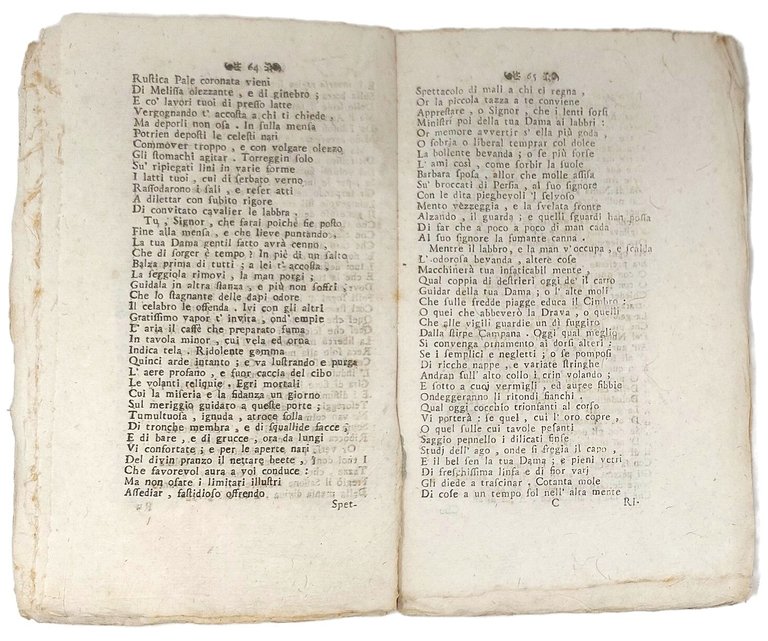 64
Rustica Pale coronata vieni
Di Melissa olezzante, e di ginebro;
E co' lavori tuoi di presso latte
Vergognando t' accosta a chi ti chiede,
Ma deporli non osa. In sulla mensa
Potrien deposti le celesti nari
Commover troppo, e con volgare olezzo
Gli stomachi agitar. Torreggin solo
Su' ripiegati lini in varie forme
I latti tuoi, cui di serbato verno
Rassodarono i sali, e reser atti
A dilettar con subito rigore
Di convitato cavalier le labbra.
Tu, Signor, che farai poichè fie posto
Fine alla mensa, e che lieve puntando,
La tua Dama gentil fatto avrà cenno,
Che di sorger è tempo? In piè di un salto
Balza prima di tutti; a lei t' accosta,
La seggiola rimovi, la man porgi;
Guidala in altra stanza, e più non soffri,
Che lo stagnante delle dapi odore
Il celabro le offenda. Ivi con gli altri
Gratissimo vapor t' invita, ond' empie
L' aria il caffè che preparato fuma
In tavola minor, cui vela ed orna
Indica tela. Ridolente gomma
Quinci arde intanto; e va lustrando e purga
L' aere profano, e fuor caccia del cibo
Le volanti reliquie. Egri mortali
Cui la miseria e la fidanza un giorno
Sul meriggio guidaro a queste porte;
Tumultuosa, ignuda, atroce folla
Di tronche membra, e di squallide facce,
E di bare, e di grucce, ora da lungi
Vi confortate; e per le aperte nari
Del divin pranzo il nettare beete,
Che favorevol aura a voi conduce:
Ma non osate i limitari illustri
Assediar, fastidioso offrendo
Spet-
65
Spettacolo di mali a chi ci regna,
Or la piccola tazza a te conviene
Apprestare, o Signor, che i lenti sorsi
Ministri poi della tua Dama ai labbri:
Or memore avvertir s' ella più goda,
O sobria o liberal temprar col dolce
La bollente bevanda; o se più forse
L' ami così, come sorbir la suole
Barbara sposa, allor che molle assisa
Su' broccati di Persia, al suo signore
Con le dita pieghevoli 'l selvoso
Mento vezzeggia, e la svelata fronte
Alzando, il guarda; e quelli sguardi han possa
Di far che a poco a poco di man cada
Al suo signore la fumante canna.
Mentre il labbro, e la man v'occupa, e scalda
L' odorosa bevanda, altere cose
Macchinerà tua infaticabil mente,
Qual coppia di destrieri oggi de' il carro
Guidar della tua Dama; o l' alte moli
Che sulle fredde piagge educa il Cimbro;
O quei che abbeverò la Drava, o quelli
Che alle vigili guardie un dì fuggiro
Dalla stirpe Campana. Oggi qual meglio
Si convenga ornamento ai dorsi alteri:
Se i semplici e negletti; o se pomposi
Di ricche nappe, e variate stringhe
Andran sull' alto collo i crin volando;
E sotto a cuoj vermigli, ed auree fibbie
Ondeggeranno li ritondi fianchi.
Qual oggi cocchio trionfanti al corso
Vi porterà: se quel, cui l' oro copre,
O quel sulle cui tavole pesanti
Saggio pennello i dilicati finse
Studj dell' ago, onde si fregia il capo,
E il bel sen la tua Dama; e pieni vetri
Di freschissima linfa e di fior varj
Gli diede a trascinar. Cotanta mole
Di cose a un tempo sol nell' alta mente
C
Ri-